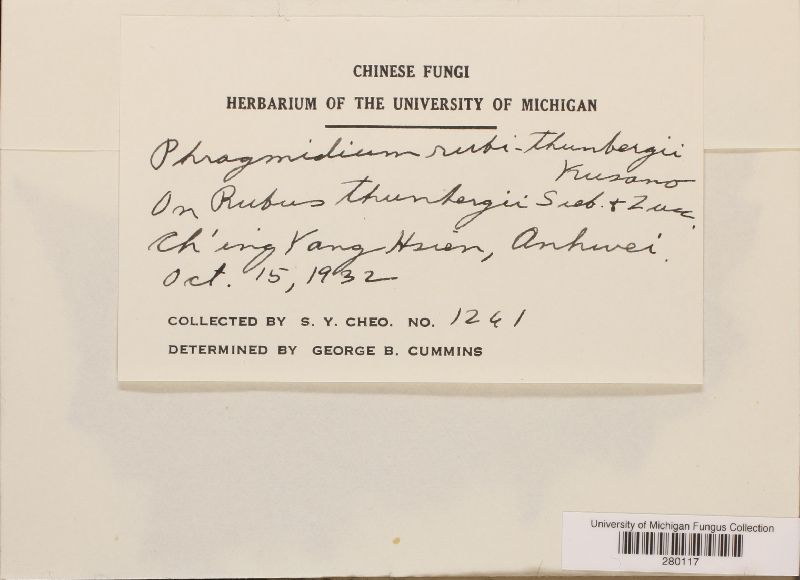 CHINESE FUNGI
HERBARIUM OF THE UNIVERSITY OF MICHIGAN
Phragmidium rubi-thunbergii
Kusano
On Rubus thunbergii Sieb. & Zucc.
Ch'ing Yang Hsien, Anhwei.
Oct. 15, 1932
COLLECTED BY S. Y. CHEO. NO. 1241
DETERMINED BY GEORGE B. CUMMINS
University of Michigan Fungus Collection
280117